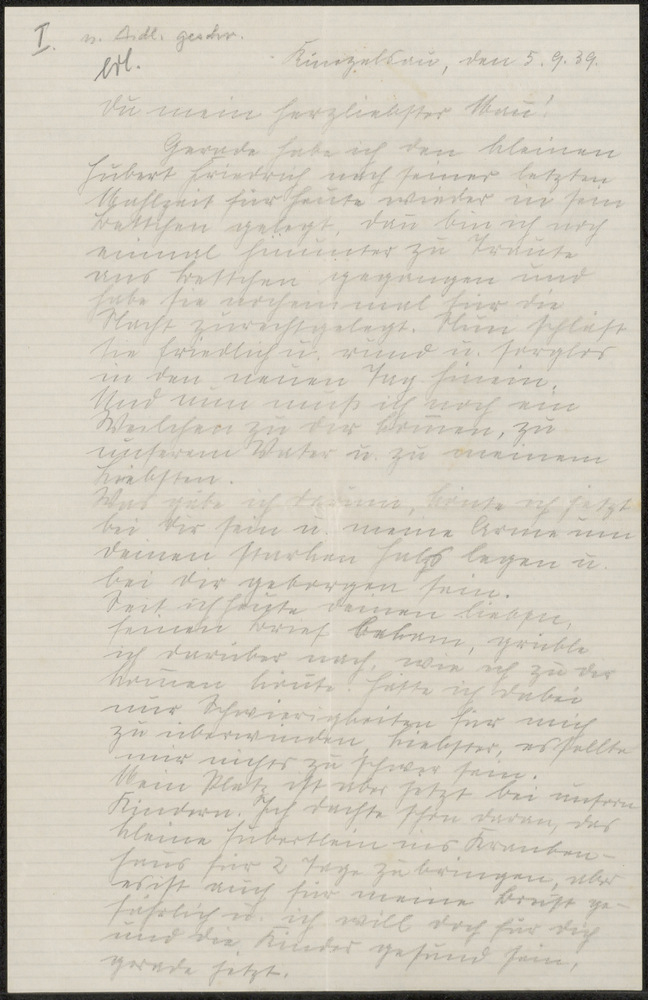 I.
Künzelsau, den 5.9.39.
Du mein herzliebster Mann!
Gerade habe ich den kleinen
Hubert Friedrich nach seiner letzten
Mahlzeit für heute wieder in sein
Bettchen gelegt, dan bin ich noch
einmal hinunter zu Traute
ans Bettchen gegangen und
habe sie nocheinmal für die
Nacht zurechtgelegt. Nun schläft
sie friedlich u. rund u. sorglos
in den neuen Tag hinein.
Und nun muß ich noch ein
Weilchen zu Dir kommen, zu
unserem Vater u. zu meinem
Liebsten.
Was gäbe ich darum, könte ich jetzt
bei Dir sein u. meine Arme um
Deinen starken Hals legen u.
bei Dir geborgen sein.
Seit ich heute Deinen lieben,
feinen Brief bekam, grüble
ich darüber nach, wie ich zu Dir
kommen könte. Hätte ich dabei
nur Schwierigkeiten für mich
zu überwinden, Liebster, es sollte
mir nichts zu schwer sein.
Mein Platz ist aber jetzt bei unsern
Kindern. Ich dachte schon daran, das
kleine Hubertlein ins Kranken-
haus für 2 Tage zu bringen, aber
es ist auch für meine Brust ge-
fährlich u. ich will doch für Dich
und die Kinder gesund sein,
gerade jetzt.